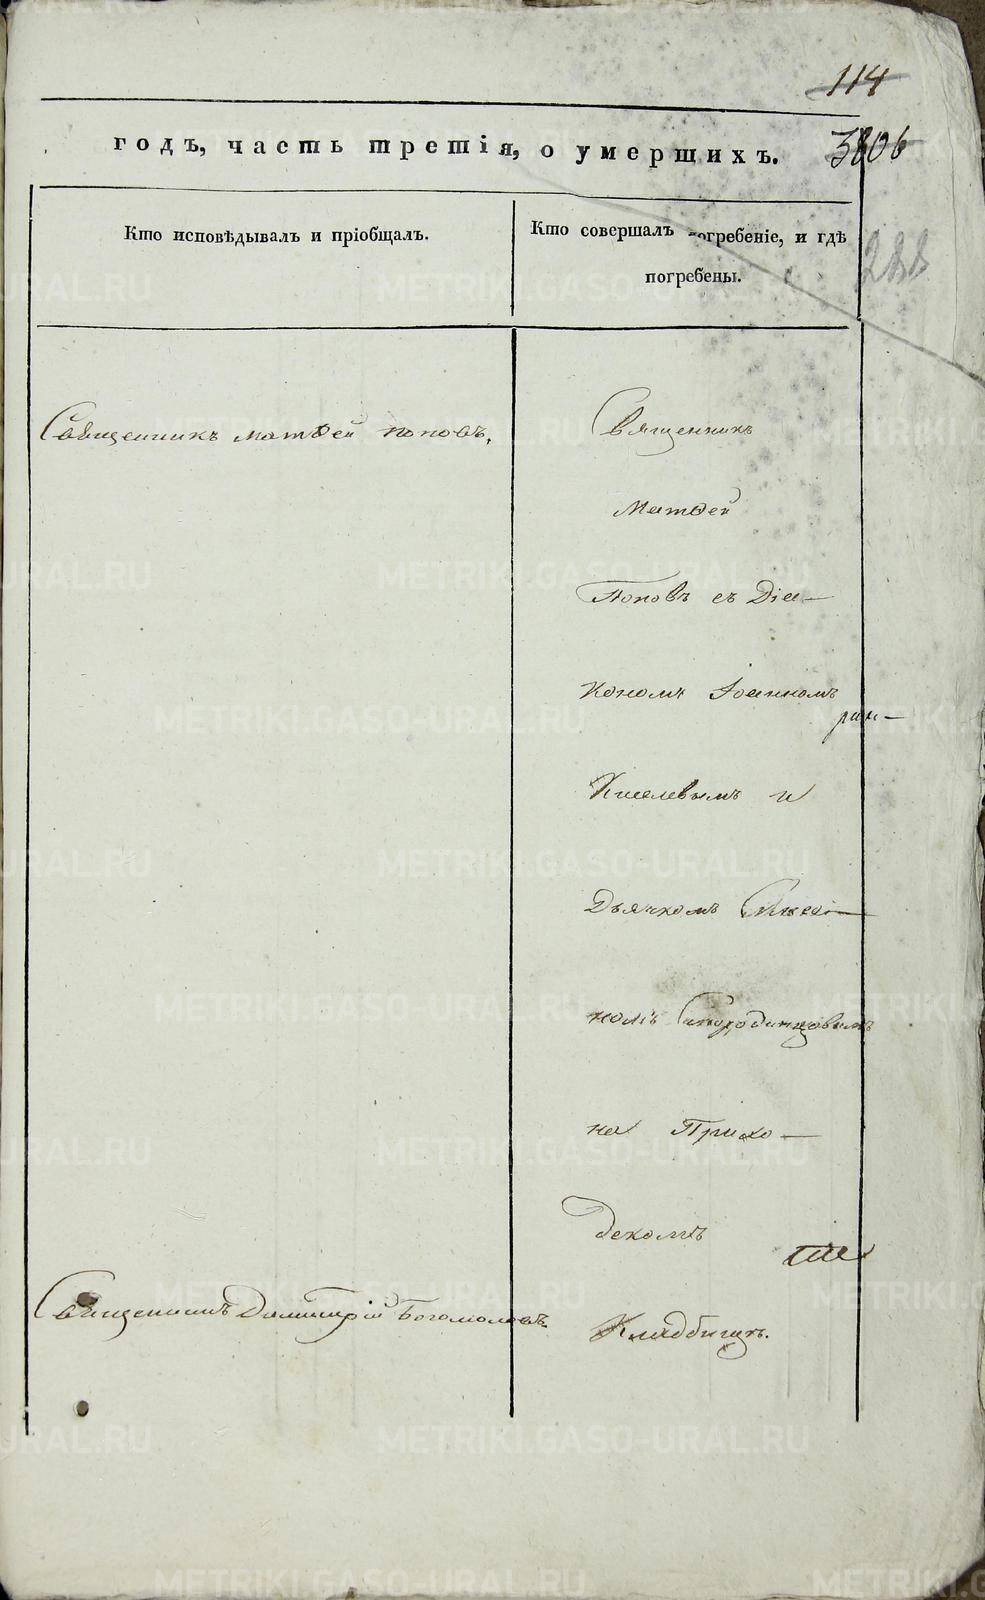 114
годъ, часть третія, о умершихъ.
3806
288
Кто исповѣдывалъ и пріобщалъ.
Кто совершалъ погребеніе, и гдѣ
погребены.
Священникъ Матѳей Поповъ.
Священникъ
Матѳей
Поповъ съ Діа-
кономъ Іоанномъ
Киселевымъ и
Дьячкомъ
на Прихо-
Священникъ Димитрій Богомоловъ.
Кладбищѣ.
METRIKI.GASO-URAL.RU